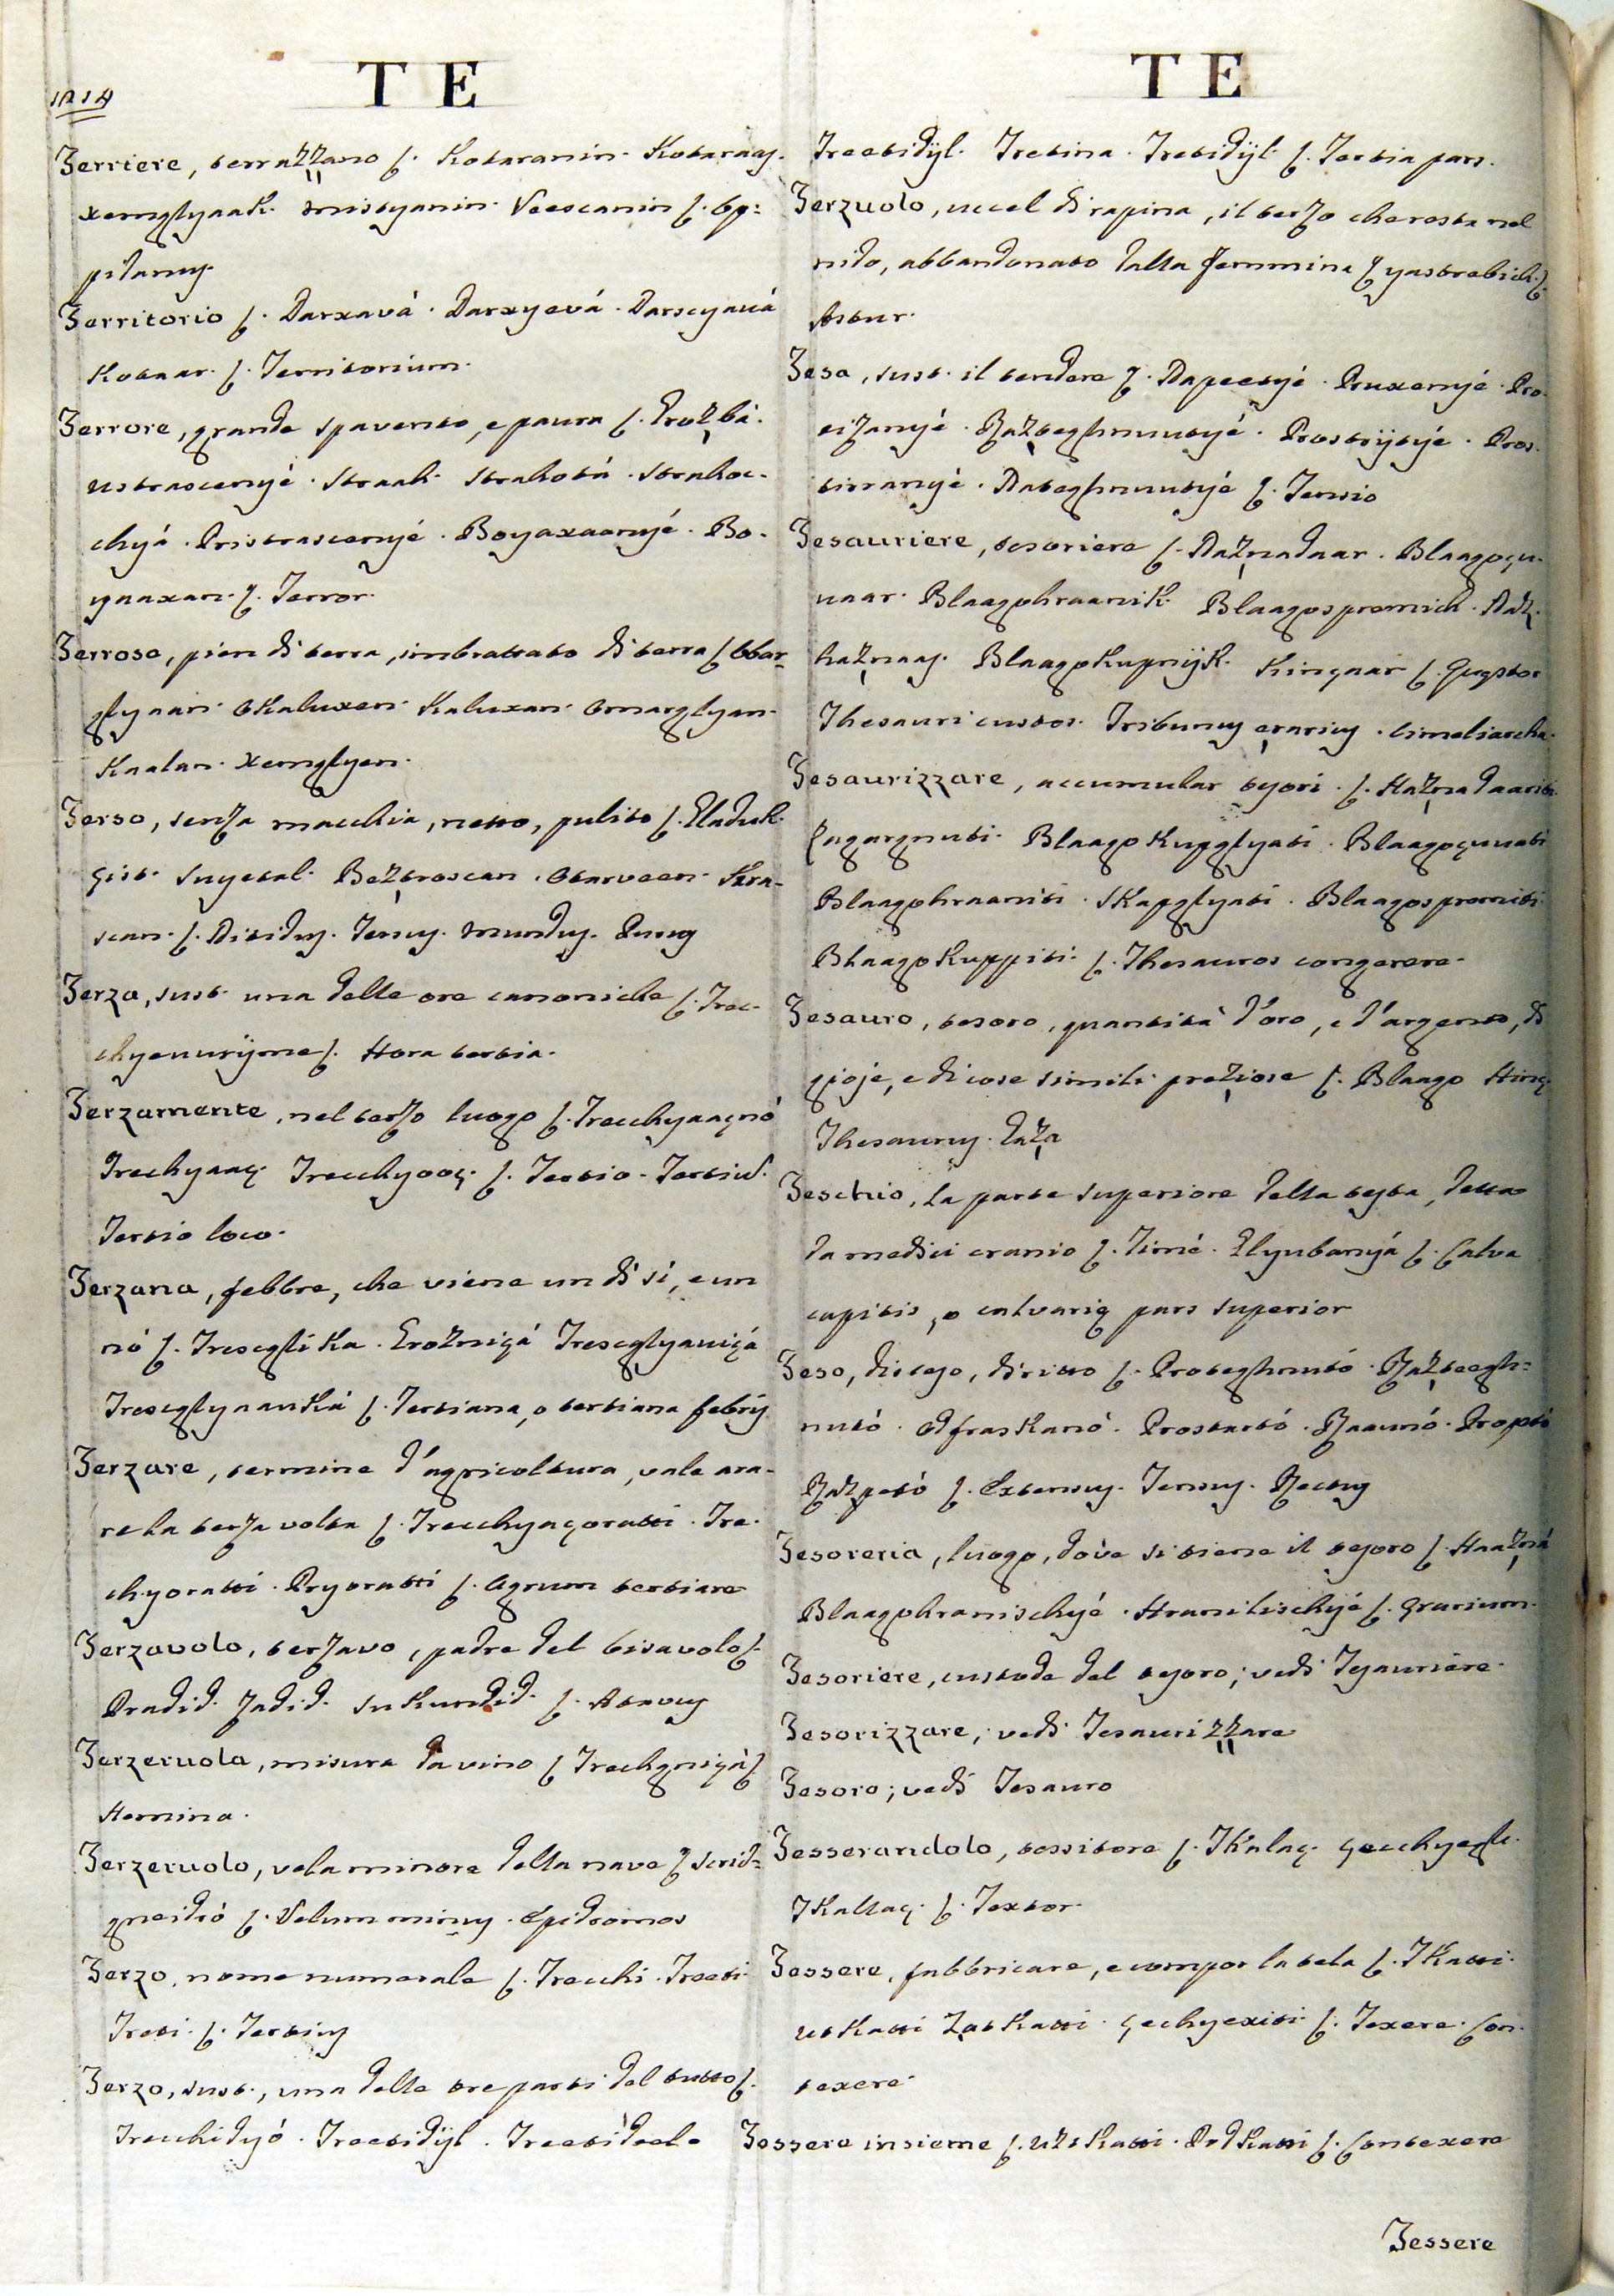 1214
T E
Terriere, terrazzano ſ. Kotaranin. Kotaraaç.
xemglyaak. mistyanin. Veescanin ſ. Op=
pidanus.
Territorio ſ. Darxavà. Darxyevá. Darscyavá
Kotaar. ſ. Territorium.
Terrore, grande spavento, e paura ſ. Grozbá.
ustrascenyé. Straah. Strahotá. Strahoc-
chyá. Pristrascenyé. Boyaxaanyé. Bo-
yaaxan. ſ. Terror.
Terroso, pien di terra, imbrattato di terra ſ. Obar-
glyaan. Okaluxen. Kaluxan. Omarglyan.
Kaalan. Xemglyen.
Terso, senza macchia, netto, pulito ſ. Gladuk.
çist. Snyetal. Beztroscan. Otarveen. Skra-
scan. ſ. Nitidus. Tersus. Mundus. Purus
Terza, sust. una delle ore canoniche ſ. Trec-
chyauurijme ſ. Hora tertia.
Terzamente, nel terzo luogo ſ. Trecchyaaçnó
Trechyaaç. Trecchyooç. ſ. Tertio. Tertium.
Tertio loco.
Terzana, febbre, che viene un dì sì, e un
nó ſ. Treseglika. Grozniçá Treseglyaviçá
Treseglynaukà ſ. Tertiana, o tertiana febris
Terzare, termine d'agricoltura, vale ara-
re la terza volta ſ. Trecchyaçoratti. Tre-
chyoratti. Pryoratti ſ. Agrum tertiare
Terzavolo, terzavo, padre del bisavolo ſ.
Pradid. Zadid. Sukundid. ſ. Abavus
Terzeruola, misura da vino ſ. Trechgniçá ſ.
Hemina.
Terzeruolo, vela minore della nave ſ. Srid=
gneidró ſ. Velum minus. Epidromos
Terzo, nome numerale ſ. Trecchi. Treeti.
Treti. ſ. Tertius
Terzo, sust., una delle tre parti del tutto ſ.
Trecchidyó. Treetidijl. Treetideel.
T E
Treetidijl. Tretina. Tretidijl. ſ. Tertia pars.
Terzuolo, uccel di rapina, il terzo che resta nel
nido, abbandonato dalla femmina ſ. yastrebich. ſ.
Astur.
Tesa, sust. il tendere ſ. Napeetyé. Pruxenyé. Pro-
cizanyé. Razteghnuutyé. Prostrijtyé. Pros-
tirranyé. Nateghnuutyé ſ. Tensio
Tesauriere, tesoriere ſ. Haznadaar. Blaagoçu-
vaar. Blaagohraanik. Blaagospremich. Naz-
haznaaç. Blaagokupnijk. Kinçaar ſ. Questor
Thesauri custos. Tribunus erarius. Cimeliarcha.
Tesaurizzare, accumular tesori. ſ. Haznadaariti.
Zagargnuti. Blaagokupglyati. Blaagoçuuati
Blaagohraaniti. Skapglyati. Blaagospremiti
Blaagokuppiti. ſ. Thesauros congerere.
Tesauro, tesoro, quantità d'oro, e d'argento, di
gioje, e di cose simili preziose ſ. Blaago Hinç.
Thesaurus. Gaza
Teschio, la parte superiore della testa, detta
da medici cranio ſ. Timé. Glyubanyá ſ. Calva
capitis, o calvarię pars superior
Teso, disteso, diritto ſ. Proteghnutó. Razteegh=
nutó. Odfraskanó. Prostartó. Raaunó. Propetó
Razpetó ſ. Extensus. Tensus. Rectus
Tesoreria, luogo, dove si tiene il tesoro ſ. Haazná
Blaagohranischyé. Hranilischyé ſ. Ęrarium.
Tesoriere, custode del tesoro; vedi Tesauriere.
Tesorizzare; vedi Tesaurizzare
Tesoro; vedi Tesauro
Tesserandolo, tessitore ſ. Tkalaç. Çecchyegh.
Tkallaç. ſ. Textor.
Tessere, fabbricare, e compor la tela ſ. Tkatti.
utkatti Zatkatti. Çechyexiti ſ. Texere. Con-
texere.
Tessere insieme ſ. Uztkatti. Podkatti ſ. Contexere
Tessere